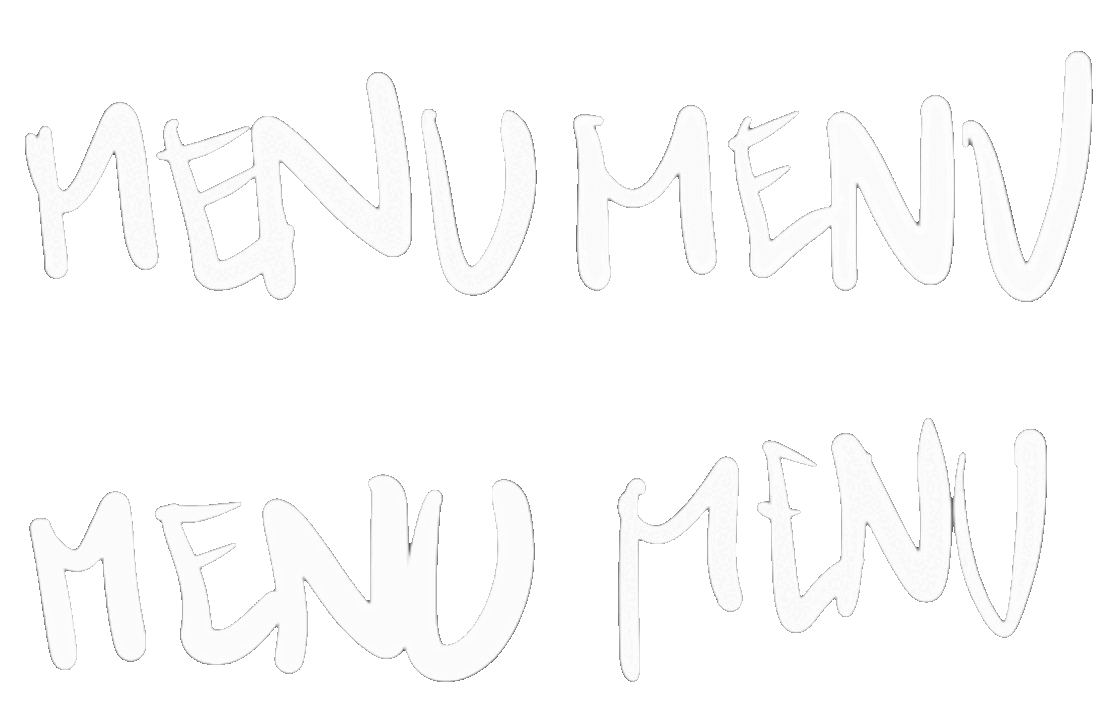 MENU MENU
MENU MENU